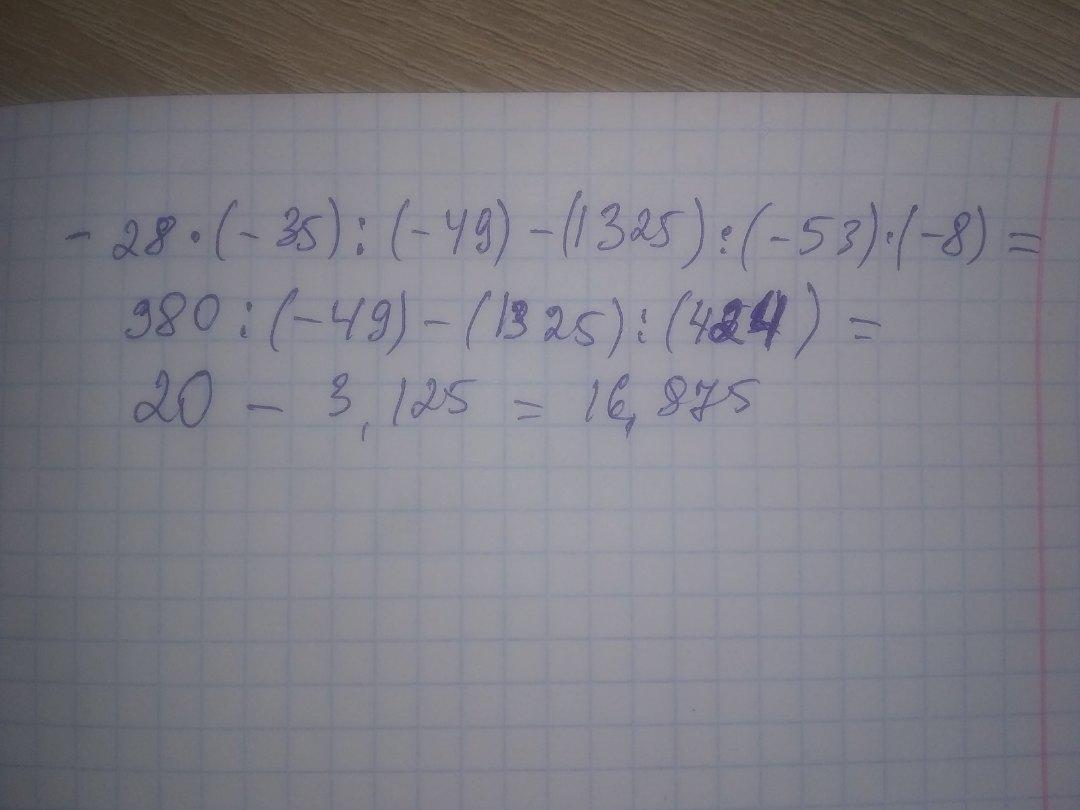 - 28 · (- 35) : (- 49) - (1325) : (- 53) · (- 8) =
980 : (- 49) - (1325) : (424) =
20 - 3,125 = 16,875